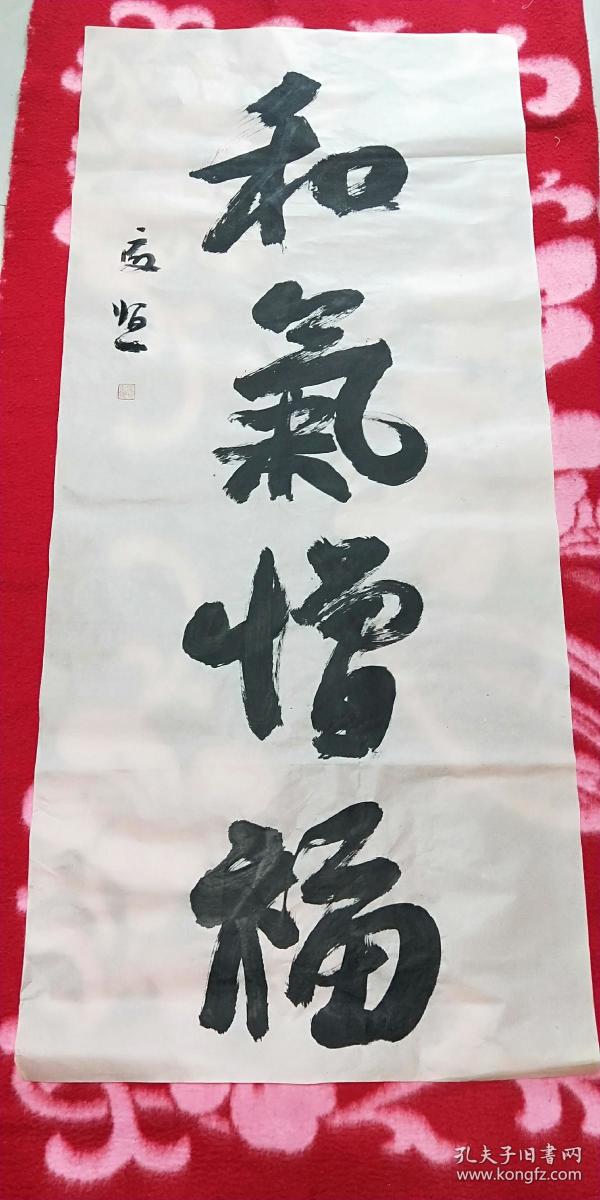 和氣憎福
孔夫子旧書网
www.kongfz.com